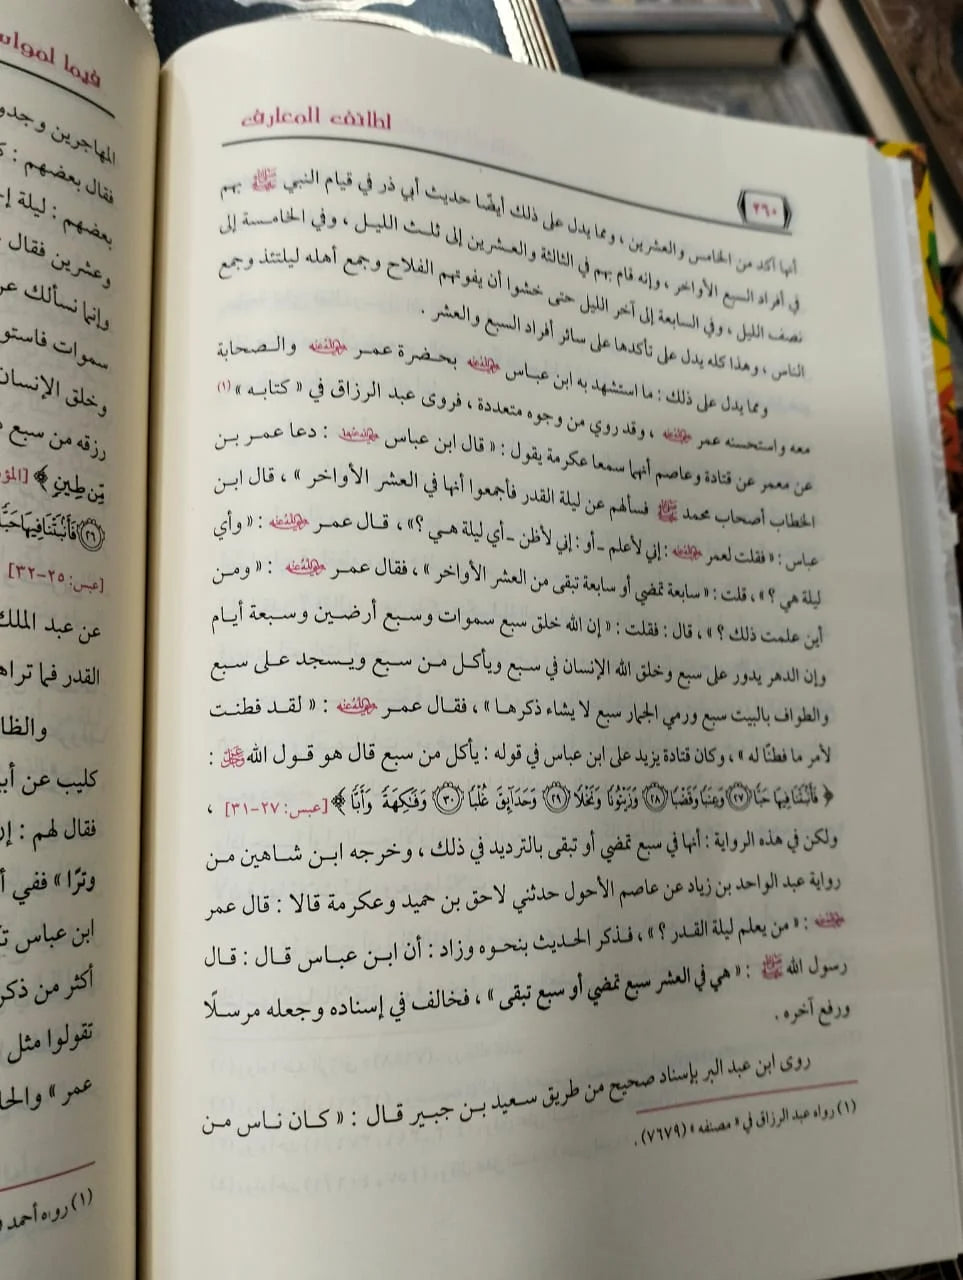 لطائف المعارف
٢٦٠
أنها آكد من الخامس والعشرين ، ومما يدل على ذلك أيضًا حديث أبي ذر في قيام النبي ﷺ بهم
في أفراد السبع الأواخر ، وإنه قام بهم في الثالثة والعشرين إلى ثلث الليل ، وفي الخامسة إلى
نصف الليل ، وفي السابعة إلى آخر الليل حتى خشوا أن يفوتهم الفلاح وجمع أهله ليلتئذ وجمع
الناس ، وهذا كله يدل على تأكدها على سائر أفراد السبع والعشر .
ومما يدل على ذلك : ما استشهد به ابن عباس رضي الله عنه بحضرة عمر رضي الله عنه والصحابة
معه واستحسنه عمر رضي الله عنه ، وقد روي من وجوه متعددة ، فروى عبد الرزاق في « كتابه » (١)
عن معمر عن قتادة وعاصم أنهما سمعا عكرمة يقول : « قال ابن عباس رضي الله عنهما : دعا عمر بن
الخطاب أصحاب محمد ﷺ فسألهم عن ليلة القدر فأجمعوا أنها في العشر الأواخر » ، قال ابن
عباس : « فقلت لعمر رضي الله عنه : إني لأعلم ـ أو : إني لأظن ـ أي ليلة هي ؟» ، قال عمر رضي الله عنه : « وأي
ليلة هي ؟ » ، قلت : « سابعة تمضي أو سابعة تبقى من العشر الأواخر » ، فقال عمر رضي الله عنه : « ومن
أين علمت ذلك ؟ » ، قال : فقلت : « إن الله خلق سبع سموات وسبع أرضين وسبعة أيام
وإن الدهر يدور على سبع وخلق الله الإنسان في سبع ويأكل من سبع ويسجد على سبع
والطواف بالبيت سبع ورمي الجمار سبع لا يشاء ذكرها » ، فقال عمر رضي الله عنه : « لقد فطنت
لأمر ما فطنّا له » ، وكان قتادة يزيد على ابن عباس في قوله : يأكل من سبع قال هو قول الله عز وجل :
﴿ فَأَنۢبَتْنَا فِيهَا حَبًّا ٢٧ وَعِنَبًا وَقَضْبًا ٢٨ وَزَيْتُونًا وَنَخْلًا ٢٩ وَحَدَآئِقَ غُلْبًا ٣٠ وَفَٰكِهَةً وَأَبًّا ﴾ [عبس: ٢٧-٣١] ،
ولكن في هذه الرواية : أنها في سبع تمضي أو تبقى بالترديد في ذلك ، وخرجه ابن شاهين من
رواية عبد الواحد بن زياد عن عاصم الأحول حدثني لاحق بن حميد وعكرمة قالا : قال عمر
رضي الله عنه : « من يعلم ليلة القدر ؟ » ، فذكر الحديث بنحوه وزاد : أن ابن عباس قال : قال
رسول الله ﷺ : « هي في العشر سبع تمضي أو سبع تبقى » ، فخالف في إسناده وجعله مرسلًا
ورفع آخره .
روى ابن عبد البر بإسناد صحيح من طريق سعيد بن جبير قال : « كان ناس من
(١) رواه عبد الرزاق في « مصنفه » (٧٦٧٩) .
المهاجرين وجدو
فقال بعضهم :
بعضهم : ليلة
وعشرين فقال
وإنما نسألك
سموات فاستو
وخلق الإنسان
رزقه من سبع
مِّن طِينٍ ﴾ [المؤ
٢٦ فَأَنۢبَتْنَا فِيهَا حَبًّا
[عبس: ٢٥-٣٢]
عن عبد الملك
القدر فما تراه
والظا
كليب عن أبي
فقال لهم : إن
وترًا » ففي
ابن عباس
أكثر من ذكر
تقولوا مثل
عمر » والحا
(١) رواه أحمد